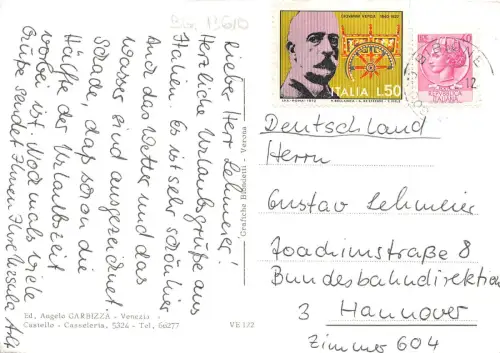 Lieber Herr Lehmeier!
Herzliche Urlaubsgrüße aus
Italien. Es ist sehr schön hier
Auch das Wetter und das
Wasser sind ausgezeichnet
Schade, daß schon die
Hälfte der Urlaubszeit
vorbei ist. Nochmals viele
Grüße sendet Ihnen Ihre Ursula
Grafiche Biondetti - Verona
Ed. Angelo GARBIZZA - Venezia
Castello - Casselleria, 5324 - Tel. 66277
VE 122
GIOVANNI VERGA 1840-1922
ITALIA L.50
Deutschland
Herrn
Gustav Lehmeier
Joachimstraße 8
Bundesbahndirektion
3 Hannover
Zimmer 604